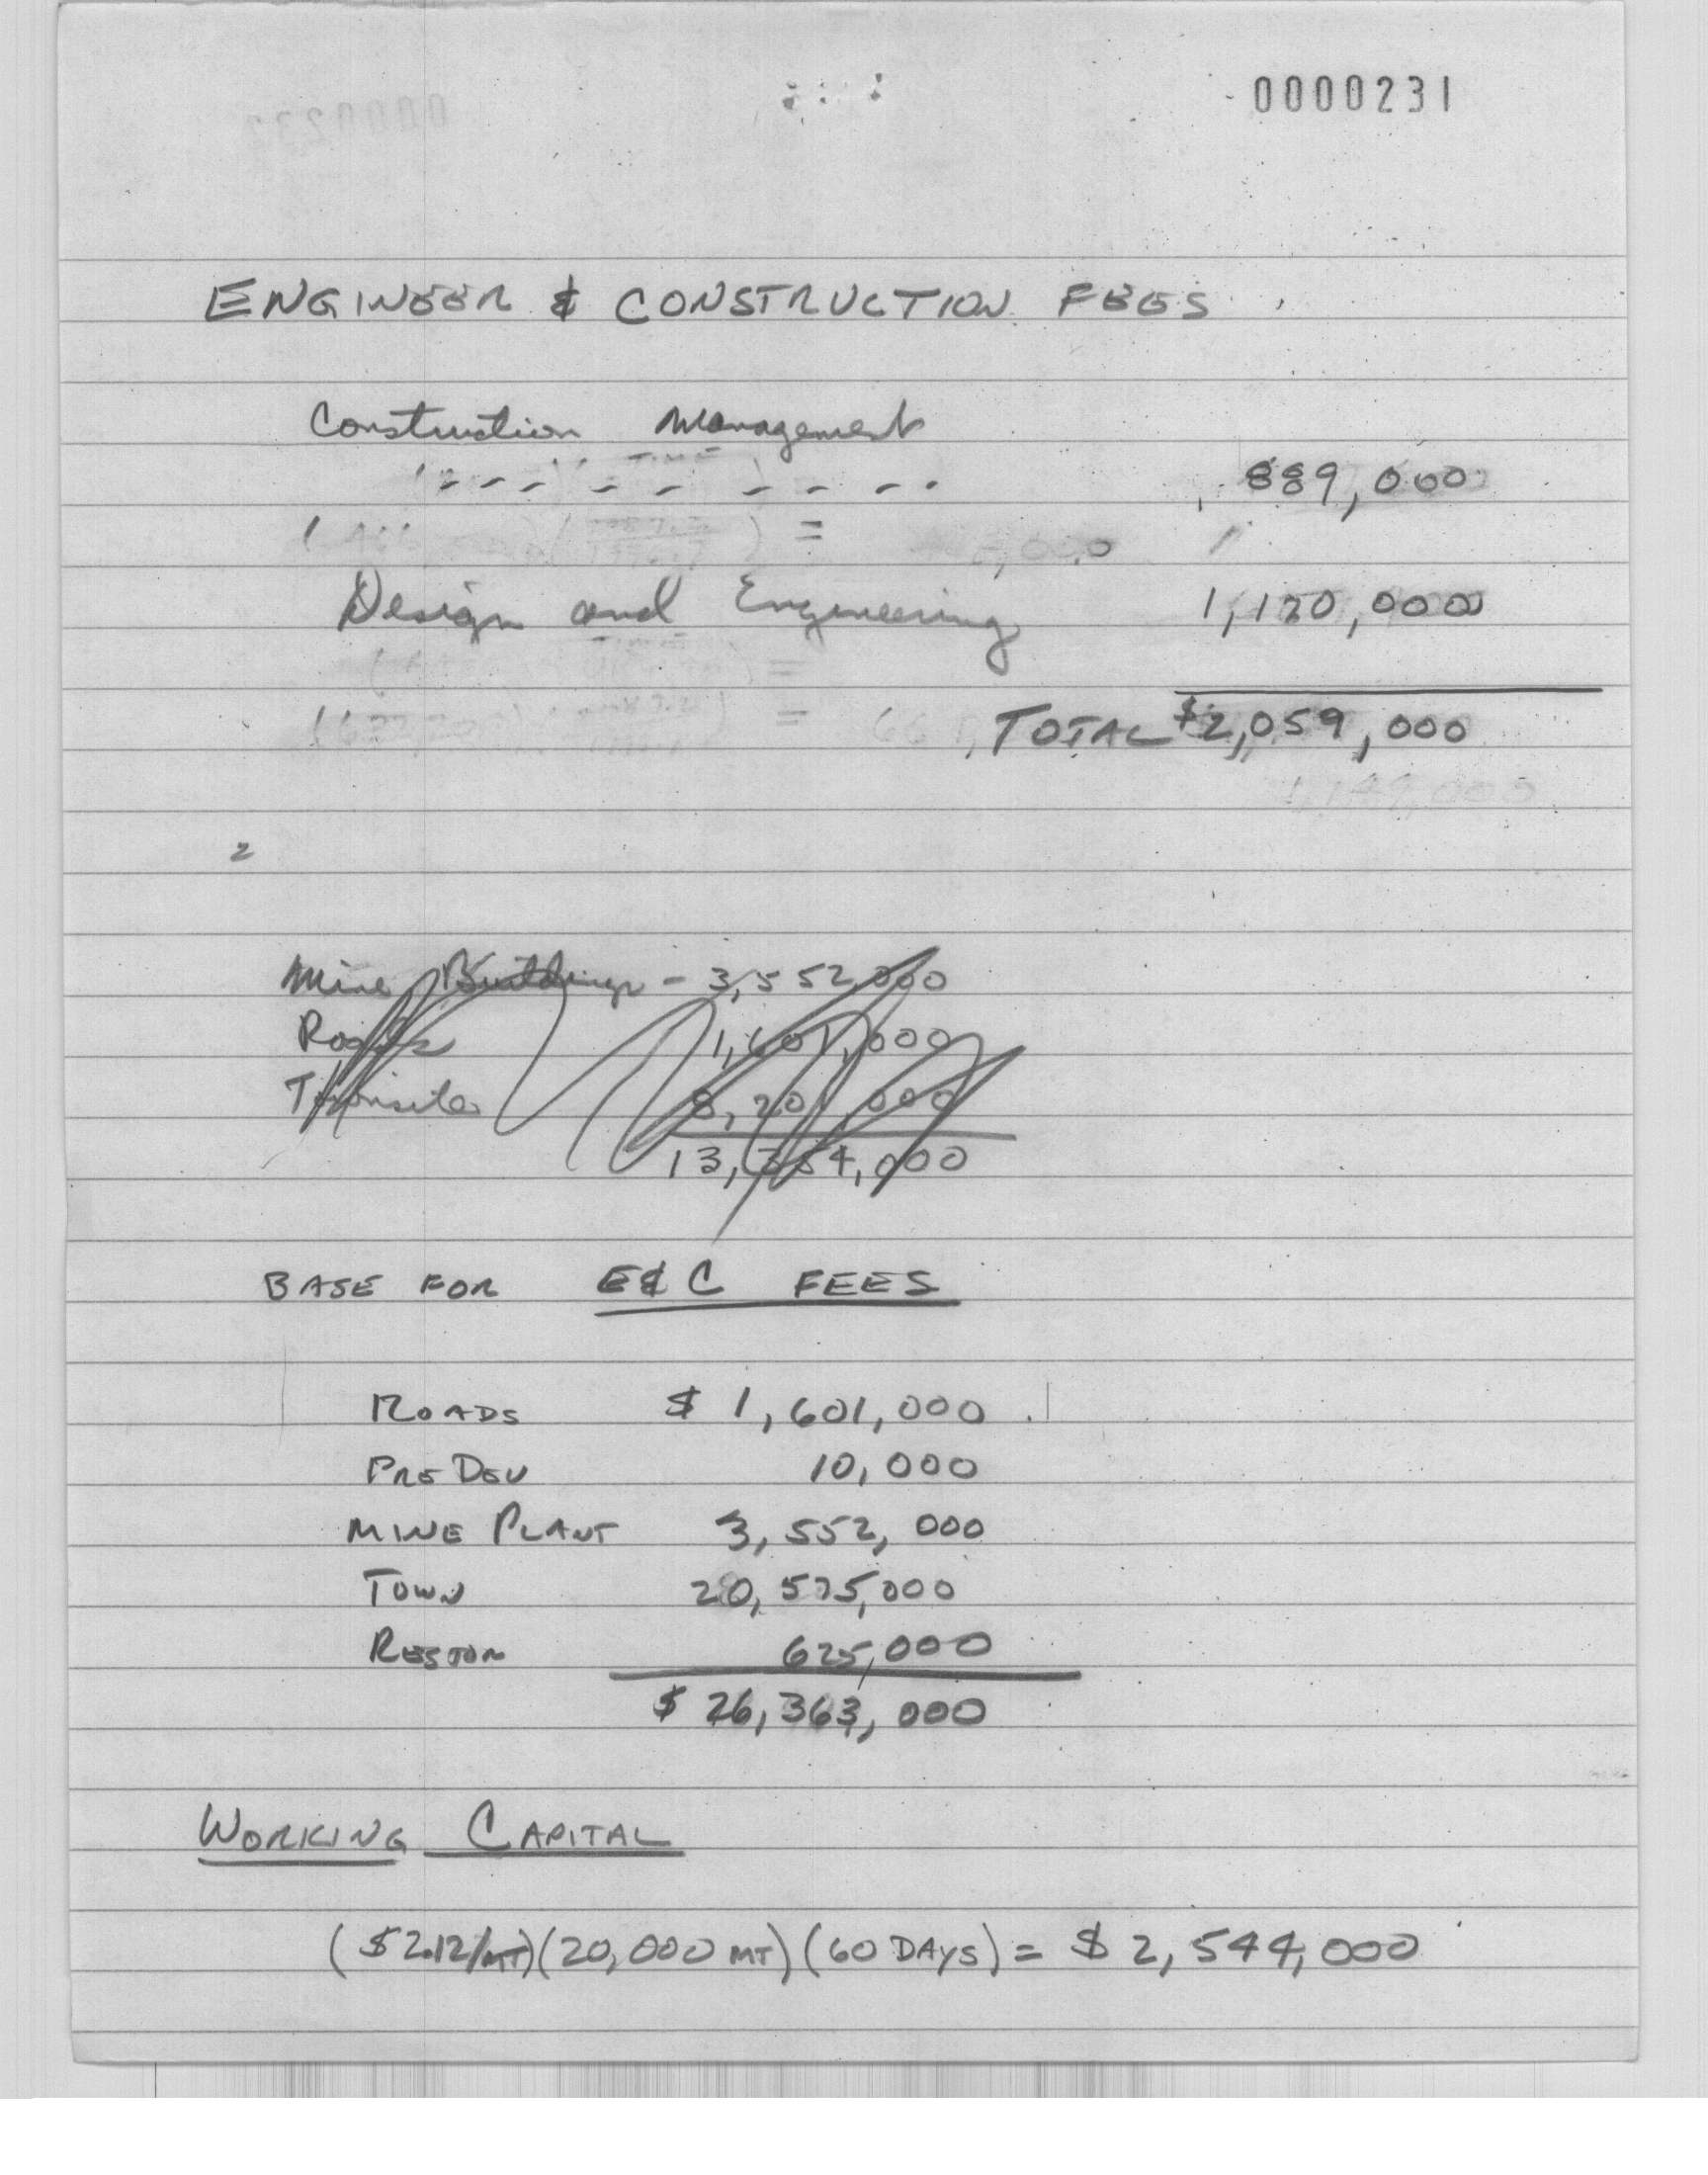 0000231
ENGINEER & CONSTRUCTION FEES
Construction Management
889,000
Design and Engineering 1,170,000
TOTAL $2,059,000
2
Mine Buildings - 3,552,000
Roads 1,601,000
Townsite 8,201,000
13,354,000
BASE FOR E&C FEES
ROADS $ 1,601,000
PRE DEV 10,000
MINE PLANT 3,552,000
TOWN 20,575,000
RESTOR 625,000
$ 26,363,000
WORKING CAPITAL
($2.12/MT)(20,000 MT)(60 DAYS) = $ 2,544,000